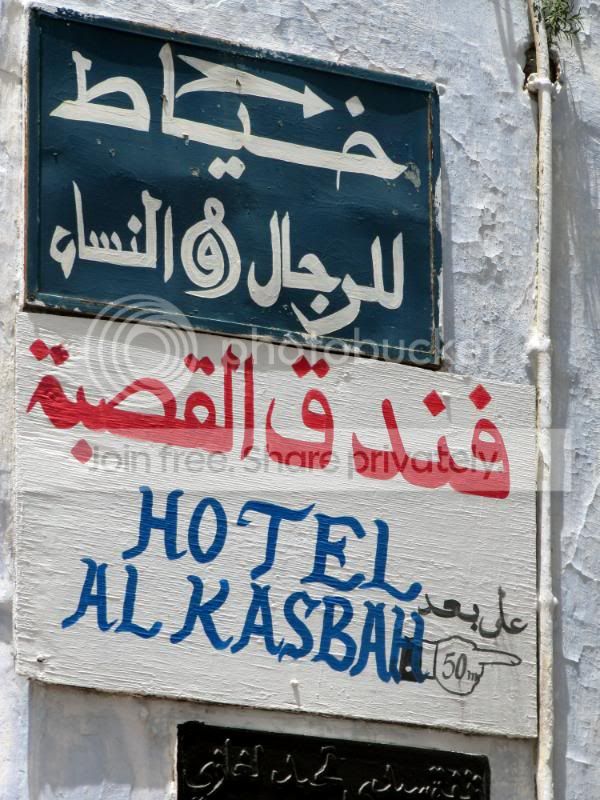 خياط
للرجال و النساء
photobucket
فندق القصبة
Join free. Share privately.
HOTEL
AL KASBAH
على بعد
50m